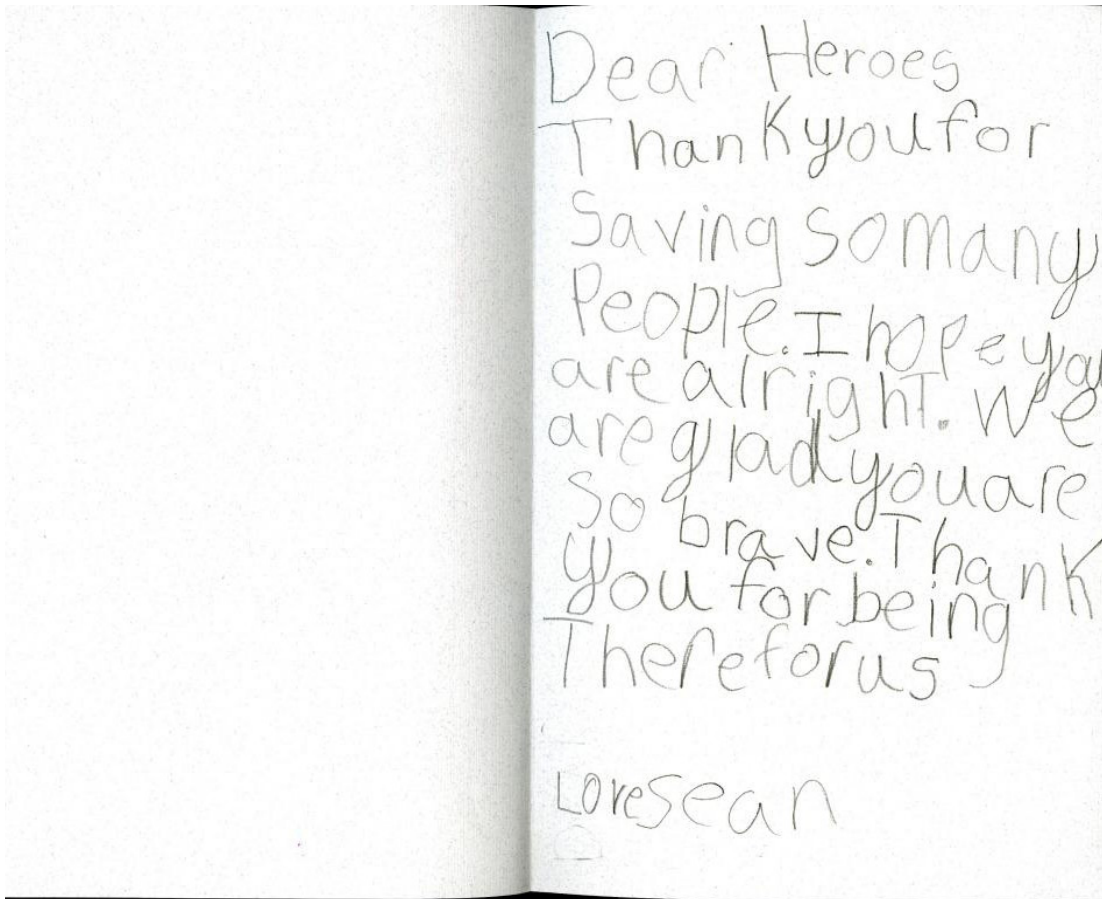 Dear Heroes
Thank you for
Saving so many
People. I hope you
are alright. We
are glad you are
so brave. Thank
you for being
There for us
Love Sean